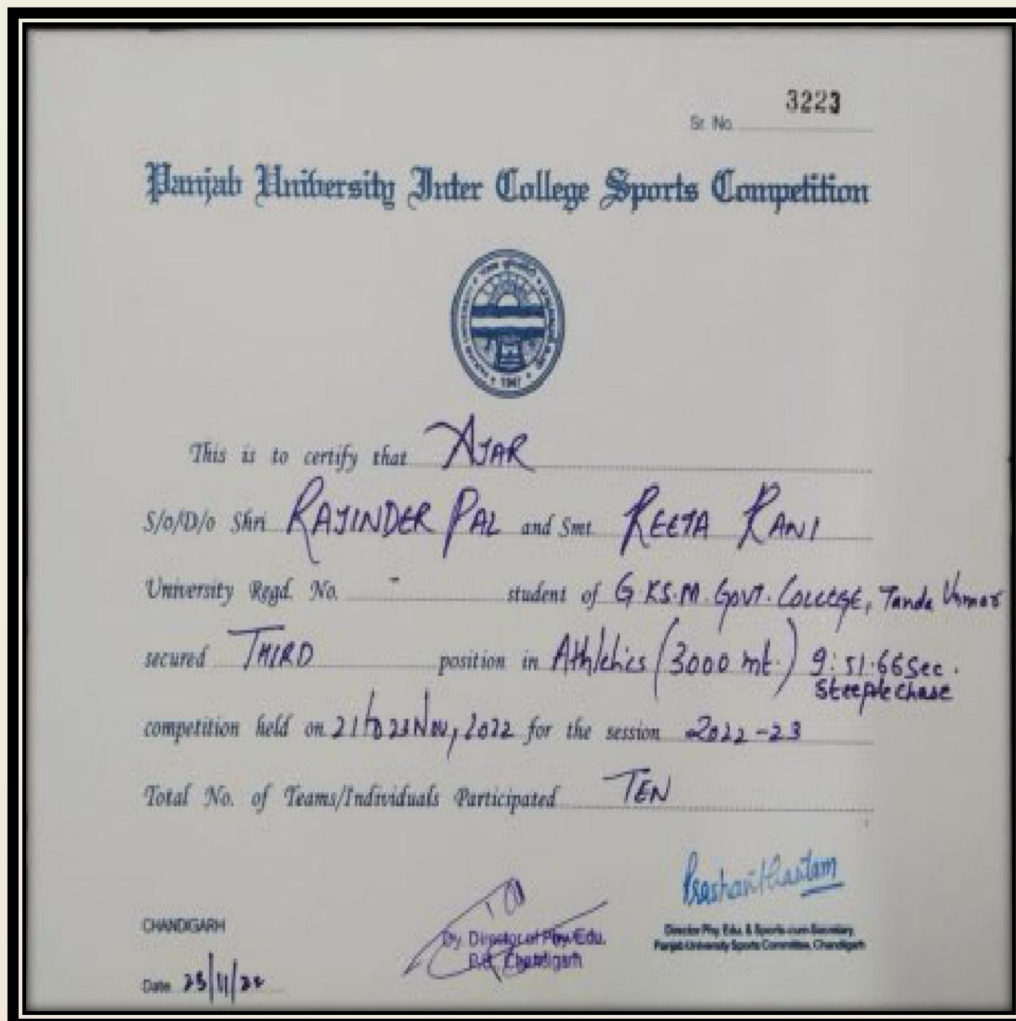 3223
Sr. No.
Panjab University Inter College Sports Competition
1947
This is to certify that AJAR
S/o/D/o Shri RAJINDER PAL and Smt. REETA RANI
University Regd. No. - student of G KS.M. GOVT. COLLEGE, Tanda Urmar
secured THIRD position in Athletics (3000 mt.) 9:51.66 Sec.
Steeplechase
competition held on 21 to 23 Nov, 2022 for the session 2022-23
Total No. of Teams/Individuals Participated TEN
CHANDIGARH
Dy. Director of Phy. Edu.
P.U. Chandigarh
Director Phy. Edu. & Sports-cum-Secretary,
Panjab University Sports Committee, Chandigarh
Date 23/11/22